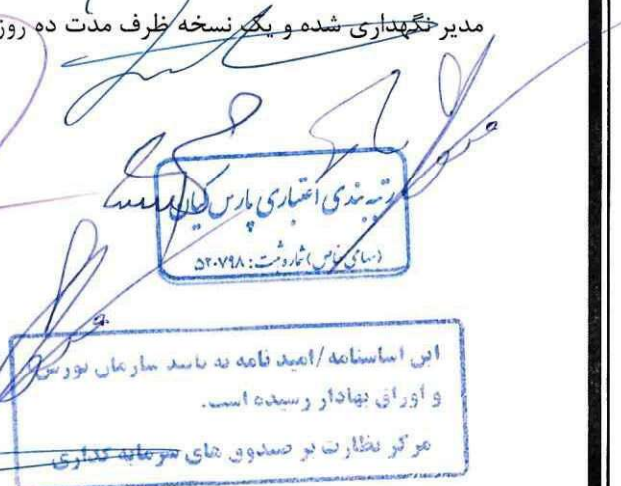 مدیر نگهداری شده و یک نسخه ظرف مدت ده روز
رتبه بندی اعتباری پارس کیان
(سهامی خاص) شماره ثبت: ۵۲۰۷۹۸
این اساسنامه/امید نامه به تایید سازمان بورس
و اوراق بهادار رسیده است.
مرکز نظارت بر صندوق های سرمایه گذاری